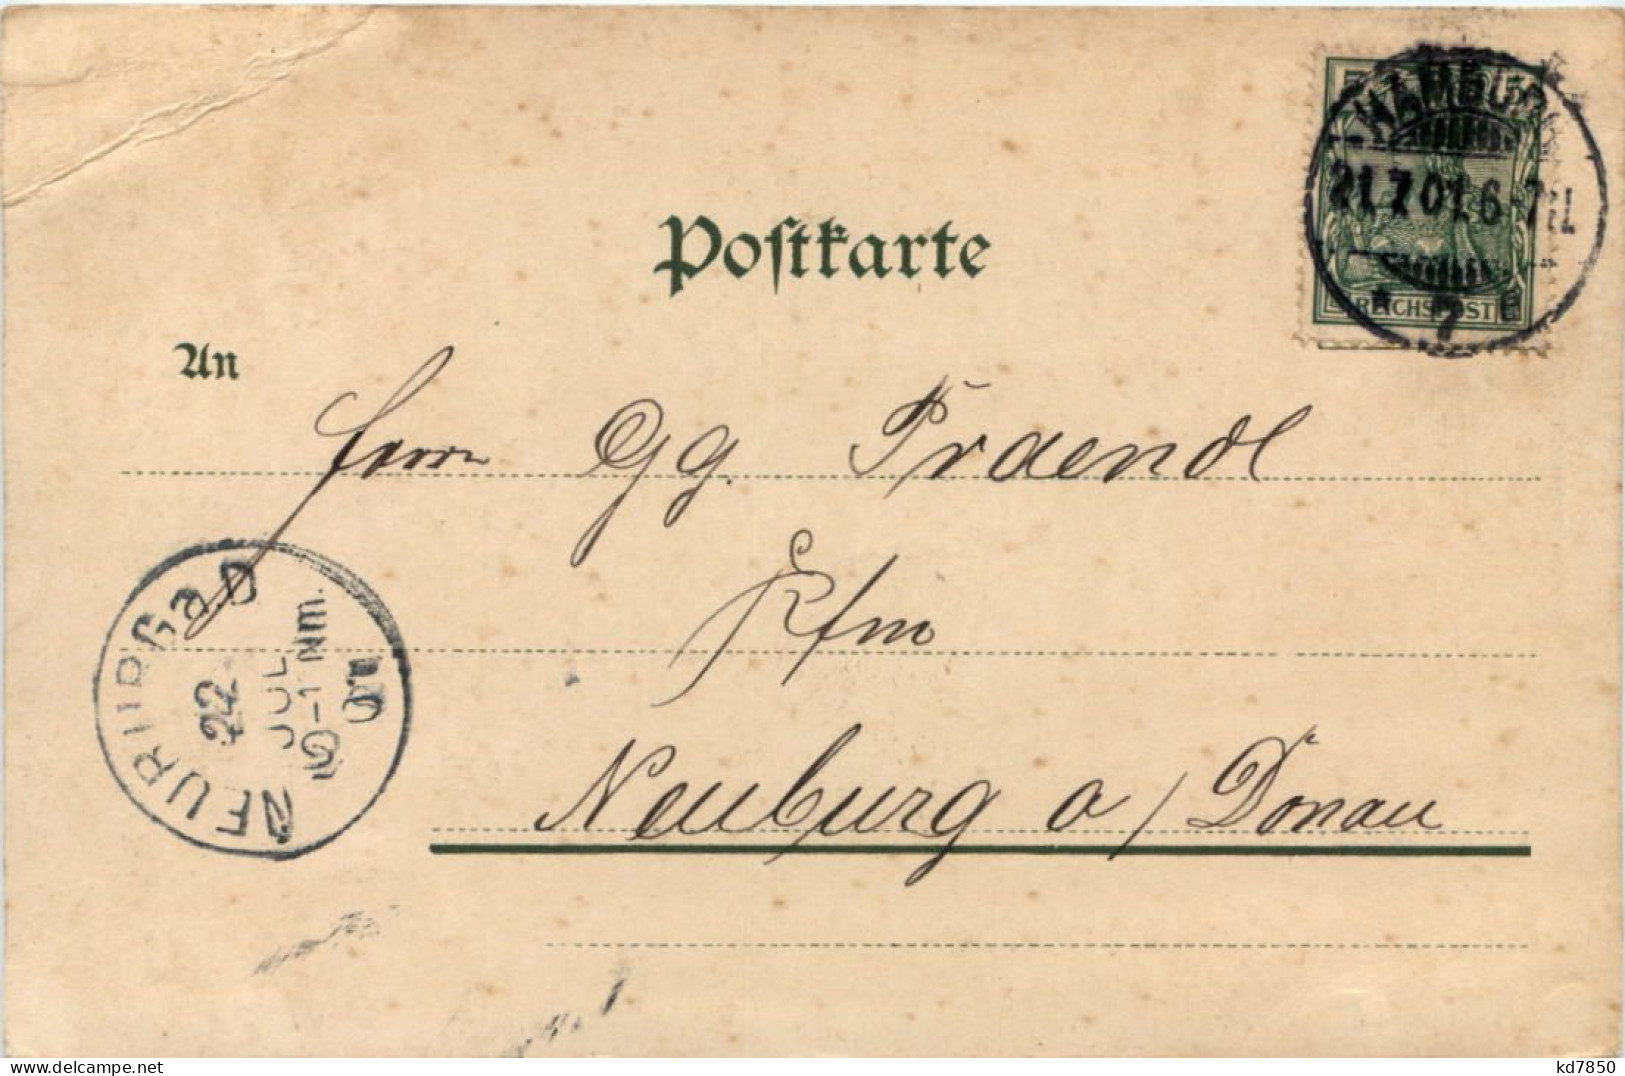 HAMBURG
21.7.01.6-7N.
* 7 e
REICHSPOST
Postkarte
An
Herrn Gg. Praendl
Kfm
Neuburg a/Donau
NEUBURG a D
22
JUL
12-1 Nm.
01
delcampe.net
kd7850